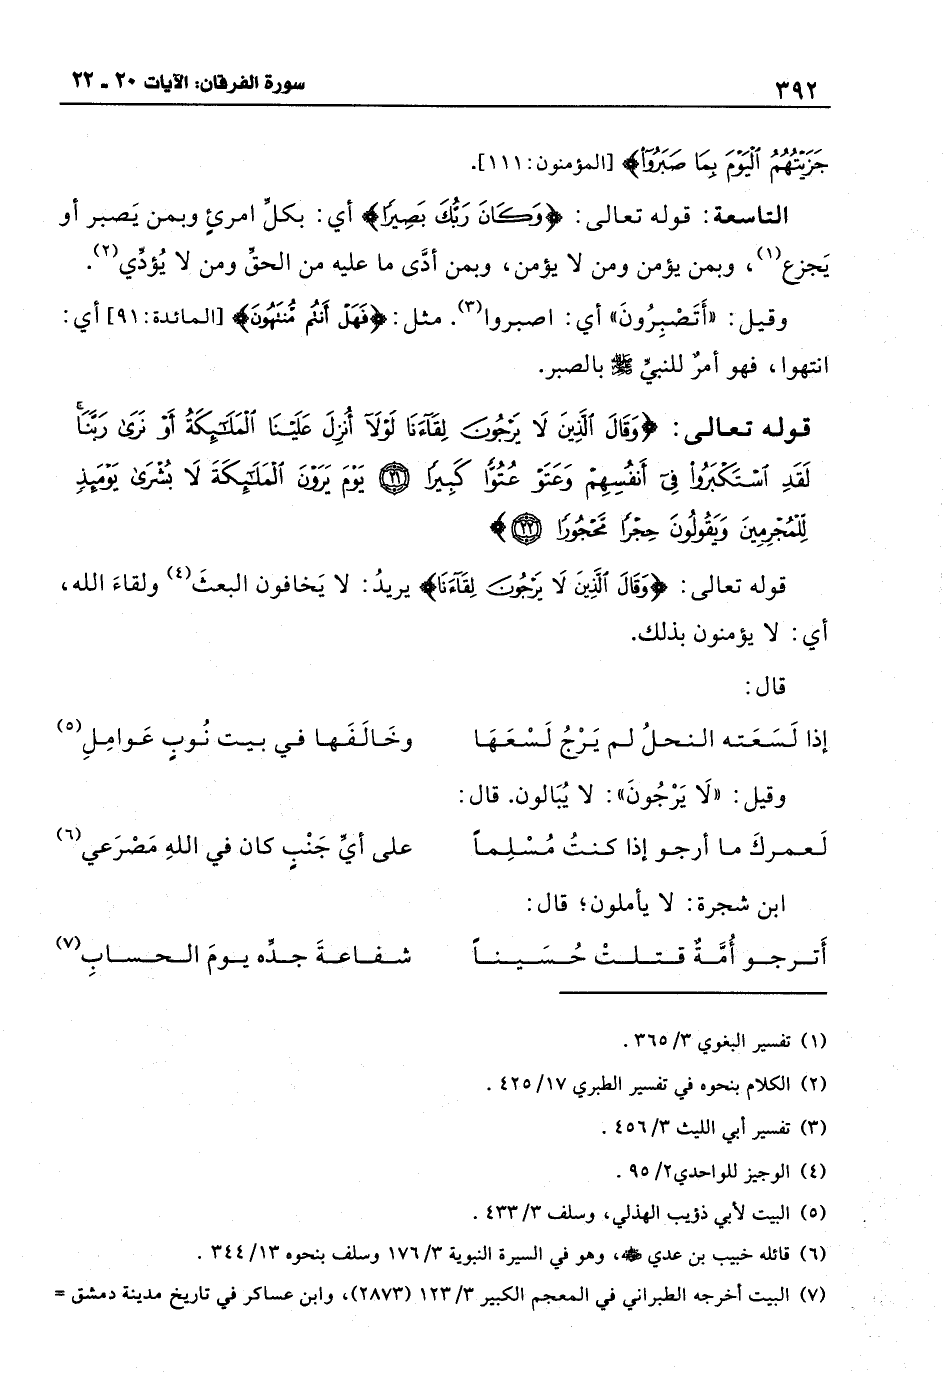 ٣٩٢ سورة الفرقان: الآيات ٢٠ ـ ٢٢
جَزَيْتُهُمُ ٱلْيَوْمَ بِمَا صَبَرُوٓا۟﴾ [المؤمنون: ١١١].
التاسعة: قوله تعالى: ﴿وَكَانَ رَبُّكَ بَصِيرًا﴾ أي: بكلِّ امرئٍ وبمن يَصبر أو
يَجزع(١)، وبمن يؤمن ومن لا يؤمن، وبمن أدَّى ما عليه من الحقِّ ومن لا يُؤدِّي(٢).
وقيل: «أَتَصْبِرُونَ» أي: اصبروا(٣). مثل: ﴿فَهَلْ أَنتُم مُّنتَهُونَ﴾ [المائدة: ٩١] أي:
انتهوا، فهو أمرٌ للنبيِّ ﷺ بالصبر.
قوله تعالى: ﴿وَقَالَ ٱلَّذِينَ لَا يَرْجُونَ لِقَآءَنَا لَوْلَآ أُنزِلَ عَلَيْنَا ٱلْمَلَٰٓئِكَةُ أَوْ نَرَىٰ رَبَّنَا ۗ
لَقَدِ ٱسْتَكْبَرُوا۟ فِىٓ أَنفُسِهِمْ وَعَتَوْ عُتُوًّا كَبِيرًا ٢١ يَوْمَ يَرَوْنَ ٱلْمَلَٰٓئِكَةَ لَا بُشْرَىٰ يَوْمَئِذٍ
لِّلْمُجْرِمِينَ وَيَقُولُونَ حِجْرًا مَّحْجُورًا ٢٢﴾
قوله تعالى: ﴿وَقَالَ ٱلَّذِينَ لَا يَرْجُونَ لِقَآءَنَا﴾ يريدُ: لا يَخافون البعثَ(٤) ولقاءَ الله،
أي: لا يؤمنون بذلك.
قال:
إذا لَسَعَته النحلُ لم يَرْجُ لَسْعَهَا وخَالَفَها في بيت نُوبٍ عَوامِلِ(٥)
وقيل: «لَا يَرْجُونَ»: لا يُبَالون. قال:
لَعمركَ ما أرجو إذا كنتُ مُسْلِماً على أيِّ جَنْبٍ كان في اللهِ مَصْرَعي(٦)
ابن شجرة: لا يأملون؛ قال:
أَترجو أُمَّةٌ قتلتْ حُسَيناً شفاعةَ جدِّه يومَ الحسابِ(٧)
(١) تفسير البغوي ٣/ ٣٦٥ .
(٢) الكلام بنحوه في تفسير الطبري ١٧/ ٤٢٥ .
(٣) تفسير أبي الليث ٣/ ٤٥٦ .
(٤) الوجيز للواحدي٢/ ٩٥ .
(٥) البيت لأبي ذؤيب الهذلي، وسلف ٣/ ٤٣٣ .
(٦) قائله خبيب بن عدي ﷺ، وهو في السيرة النبوية ٣/ ١٧٦ وسلف بنحوه ١٣/ ٣٤٤ .
(٧) البيت أخرجه الطبراني في المعجم الكبير ٣/ ١٢٣ (٢٨٧٣)، وابن عساكر في تاريخ مدينة دمشق =